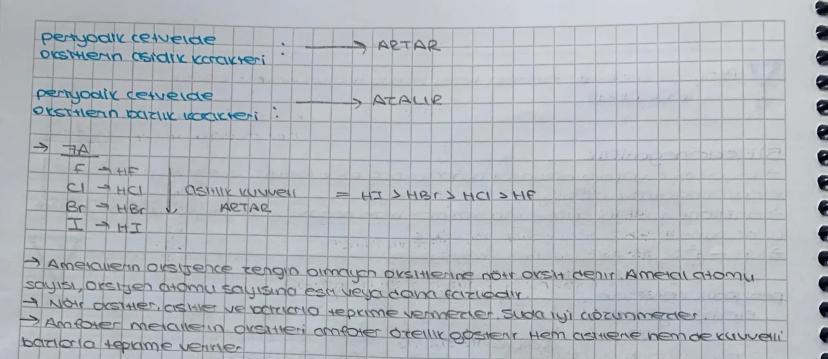 periyodik cetvelde
oksitlerin asidik karakteri : → ARTAR
periyodik cetvelde
oksitlerin bazlık karakteri : → AZALIR
→ 7A
F → HF
Cl → HCl
Br → HBr
I → HI
↓ asitlik kuvveti ARTAR = HI > HBr > HCl > HF
→ Ametallerin oksijence zengin olmayan oksitlerine nötr oksit denir. Ametal atomu
sayısı, oksijen atomu sayısına eşit veya daha fazladır.
→ Nötr oksitler, asitle ve bazlarla tepkime vermezler. Suda iyi çözünmezler.
→ Amfoter metallerin oksitleri amfoter özellik gösterir. Hem asitlerle hem de kuvvetli
bazlarla tepkime verirler